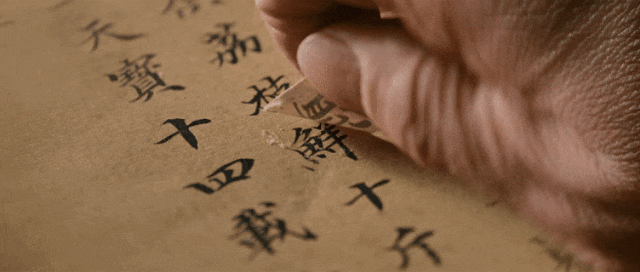 荔枝鮮十斤
天寶十四載